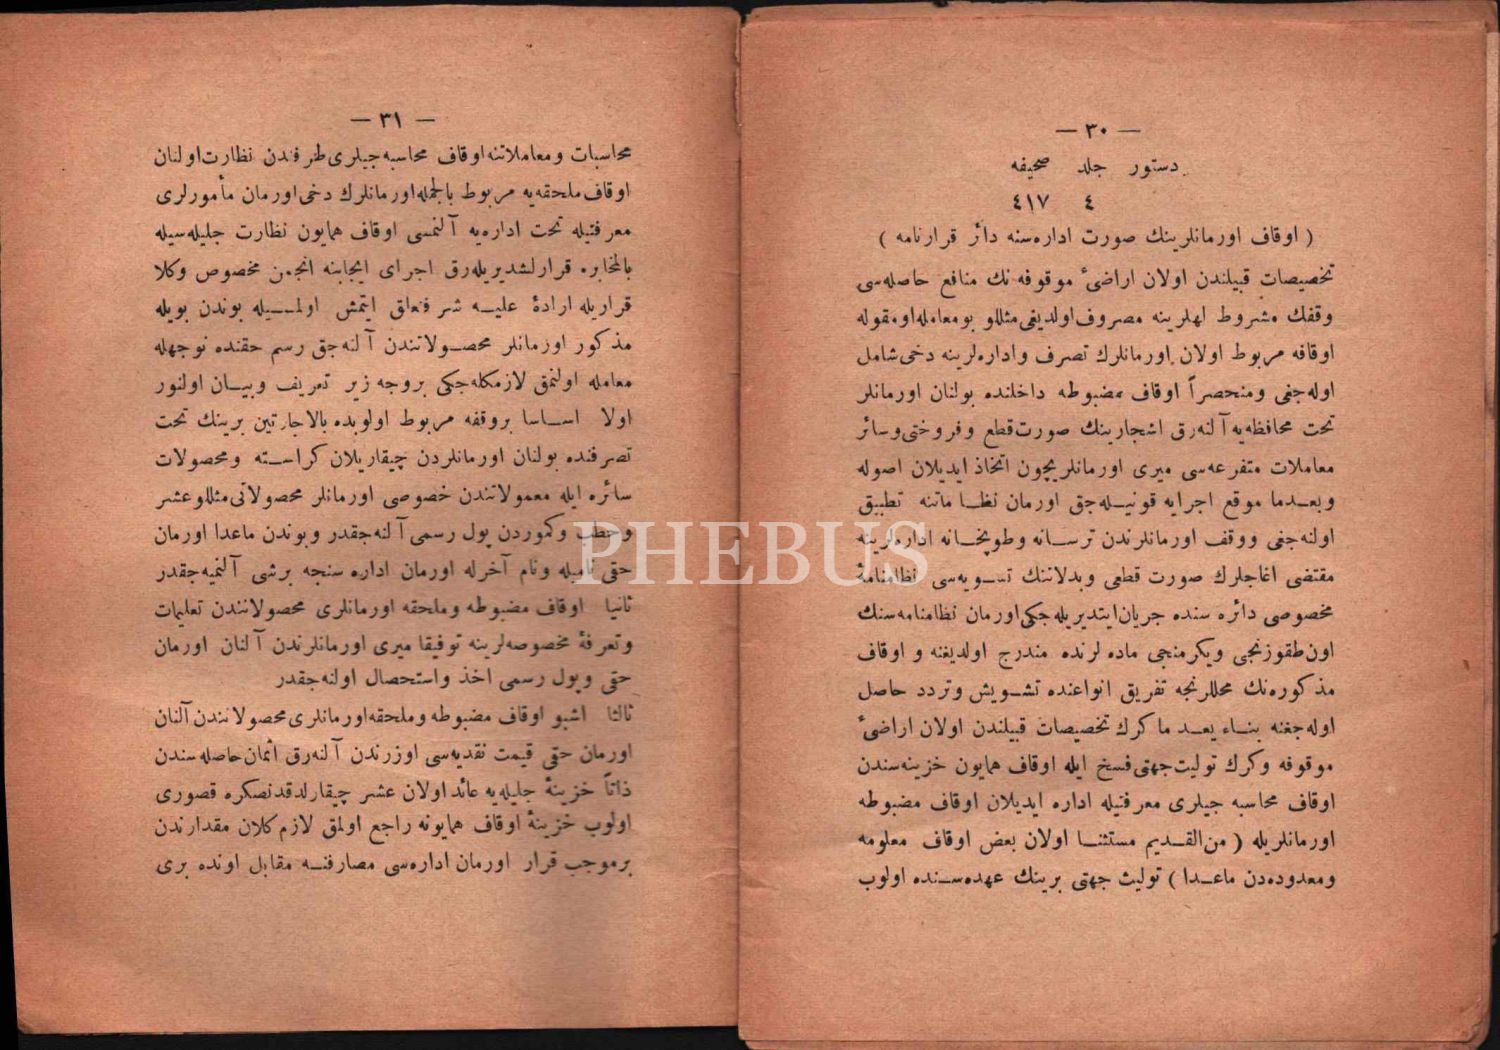 — ٣٠ —
دستور جلد صحيفه
٤ ٤١٧
( اوقاف اورمانلرينك صورت اداره‌سنه دائر قرارنامه )
تخصيصات قبيلندن اولان اراضئ موقوفه‌نك منافع حاصله‌سى
وقفك مشروط لهلرينه مصروف اولديغى مثللو بو معامله او مقوله
اوقافه مربوط اولان اورمانلرك تصرف واداره‌لرينه دخى شامل
اوله‌جغى ومنحصراً اوقاف مضبوطه داخلنده بولنان اورمانلر
تحت محافظه‌يه آلنه‌رق اشجارينك صورت قطع وفروختى وسائر
معاملات متفرعه‌سى ميرى اورمانلريچون اتخاذ ايديلان اصوله
وبعدما موقع اجرايه قونيله‌جق اورمان نظاماتنه تطبيق
اولنه‌جغى ووقف اورمانلرندن ترسانه وطوپخانه اداره‌لرينه
مقتضى اغاجلرك صورت قطعى وبدلاتنك تسويه‌سى نظامنامۀ
مخصوصى دائره سنده جريان ايتديريله‌جكى اورمان نظامنامه‌سنك
اون طقوزنجى ويكرمنجى ماده لرنده مندرج اولديغنه و اوقاف
مذكوره‌نك محللرنجه تفريق انواعنده تشويش وتردد حاصل
اوله‌جغنه بناء بعد ما كرك تخصيصات قبيلندن اولان اراضئ
موقوفه وكرك توليت جهتى فسخ ايله اوقاف همايون خزينه‌سندن
اوقاف محاسبه جيلرى معرفتيله اداره ايديلان اوقاف مضبوطه
اورمانلريله ( من‌القديم مستثنا اولان بعض اوقاف معلومه
ومعدوده‌دن ماعدا ) توليت جهتى برينك عهده‌سنده اولوب
— ٣١ —
محاسبات ومعاملاتنه اوقاف محاسبه جيلرى طرفندن نظارت اولنان
اوقاف ملحقه‌يه مربوط بالجمله اورمانلرك دخى اورمان مأمورلرى
معرفتيله تحت اداره‌يه آلنمسى اوقاف همايون نظارت جليله‌سيله
بالمخابره قرارلشديريله‌رق اجراى ايجابنه انجمن مخصوص وكلا
قراريله ارادۀ عليه شرفتعلق ايتمش اولمسيله بوندن بويله
مذكور اورمانلر محصولاتندن آلنه‌جق رسم حقنده نوجهله
معامله اولنمق لازمكله‌جكى بروجه زير تعريف وبيان اولنور
اولا اساسا بروقفه مربوط اولوبده بالاجارتين برينك تحت
تصرفنده بولنان اورمانلردن چيقاريلان كراسته ومحصولات
سائره ايله معمولاتندن خصوصى اورمانلر محصولاتى مثللو عشر
وحطب وكموردن پول رسمى آلنه‌جقدر وبوندن ماعدا اورمان
حقى ناميله ونام آخرله اورمان اداره سنجه برشى آلنميه‌جقدر
ثانيا اوقاف مضبوطه وملحقه اورمانلرى محصولاتندن تعليمات
وتعرفۀ مخصوصه‌لرينه توفيقا ميرى اورمانلرندن آلنان اورمان
حقى وپول رسمى اخذ واستحصال اولنه‌جقدر
ثالثا اشبو اوقاف مضبوطه وملحقه اورمانلرى محصولاتندن آلنان
اورمان حقى قيمت نقديه‌سى اوزرندن آلنه‌رق اثمان حاصله‌سندن
ذاتاً خزينۀ جليله‌يه عائد اولان عشر چيقارلدقدنصكره قصورى
اولوب خزينۀ اوقاف همايونه راجع اولمق لازم كلان مقدارندن
برموجب قرار اورمان اداره‌سى مصارفنه مقابل اونده برى
PHEBUS